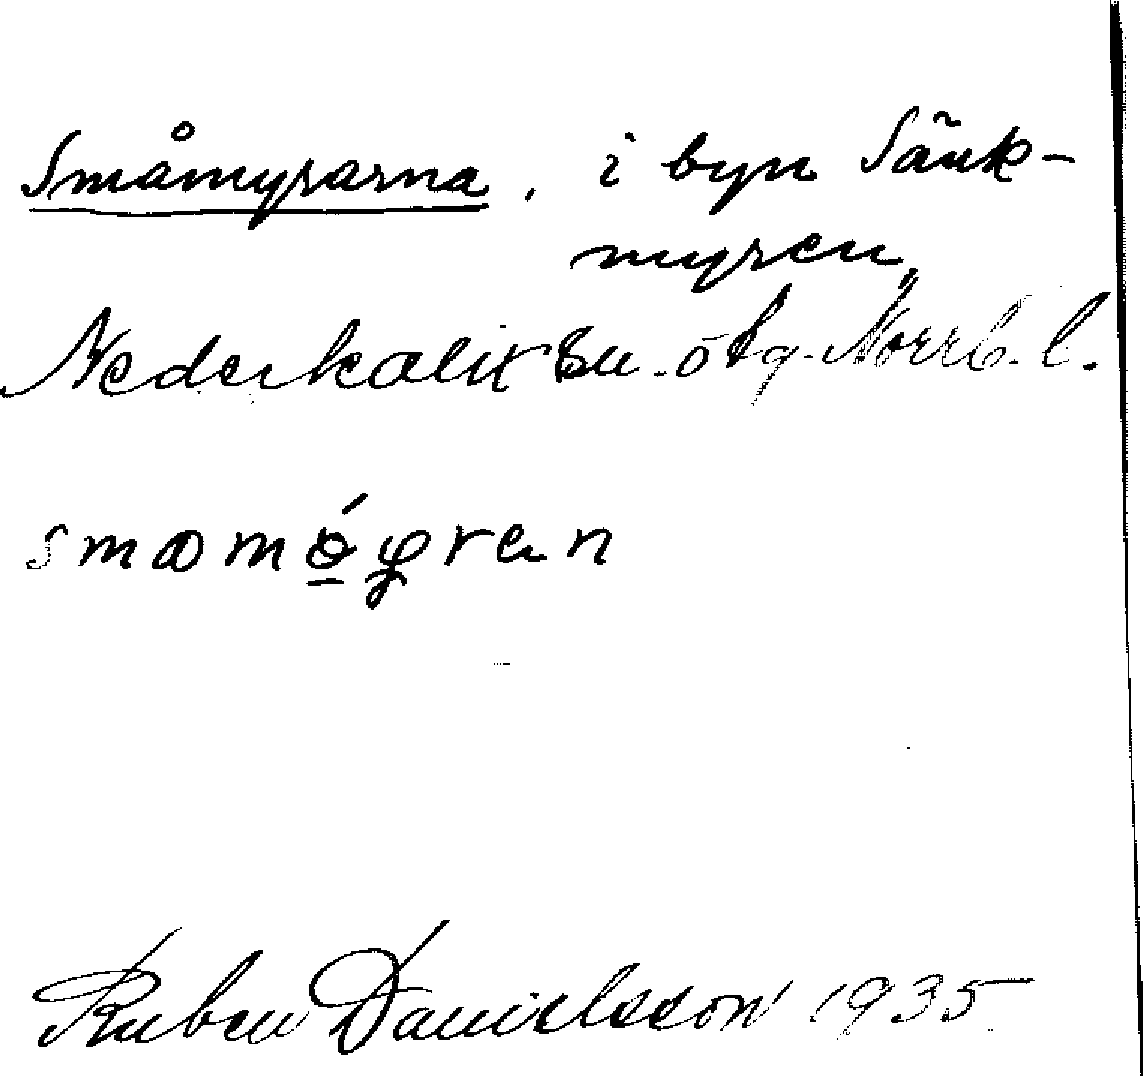 Småmyrarna, i byn Sänk-
myren,
Nederkalix sn. ö bg. Norrb. l.
Ruben Danielsson 1935